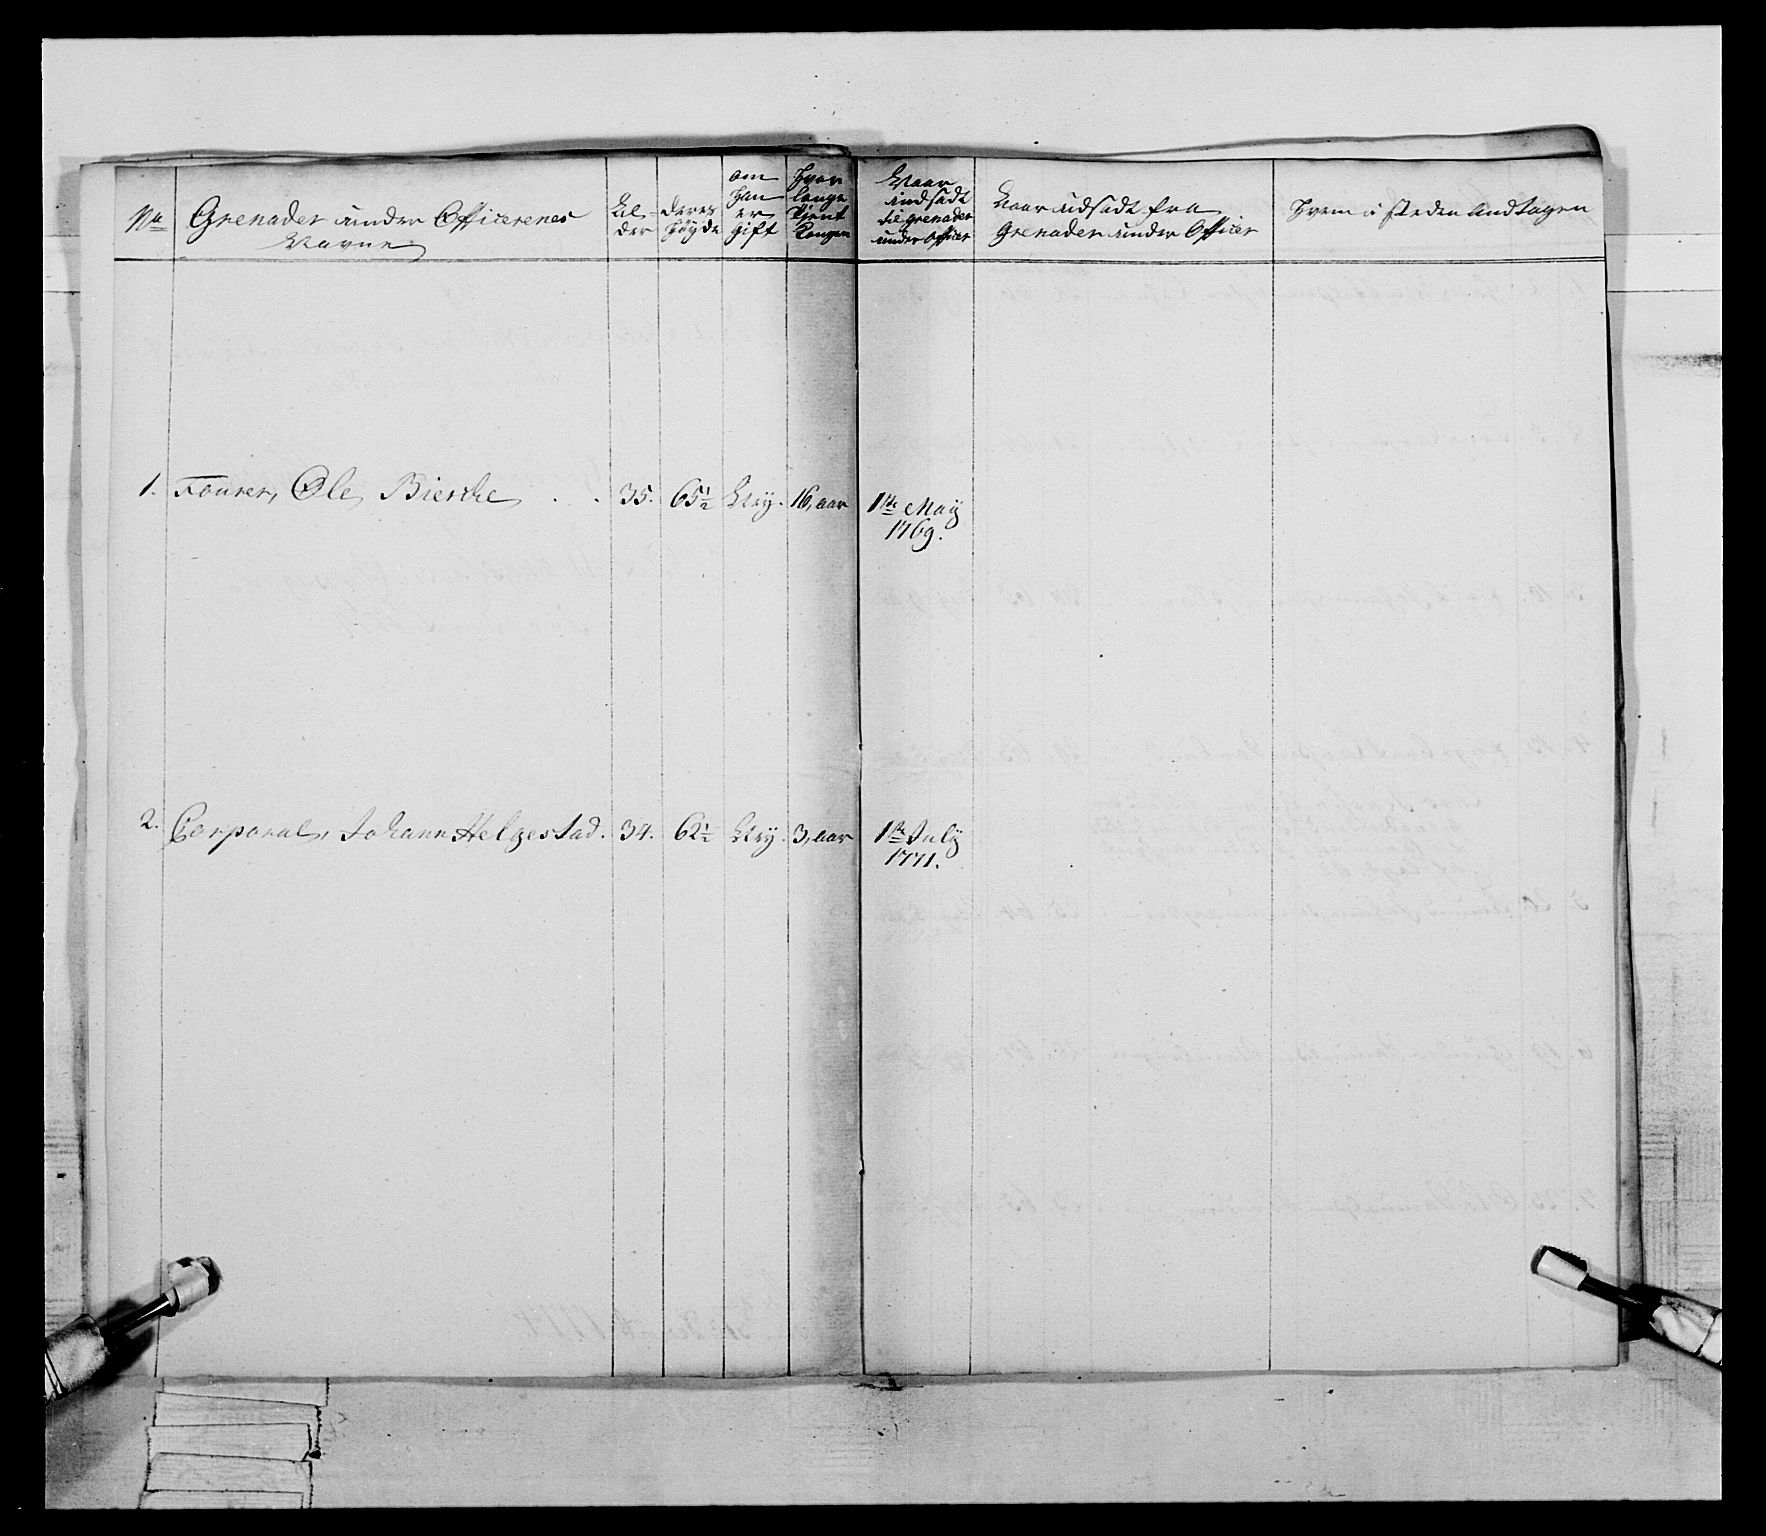 No Grenader under Officerenes
Navne
Al-
der
deres
høyde
om
han
er
gift
hvor
lange
tient
Kongen
Naar
indsadt
til grenader
under Officer
Naar udsadt fra
Grenader under Officer
hvem i steden Andtagen
1. Fourer, Ole Bierche . . 35. 65½ Ney. 16, aar 1ste May
1769.
2. Corporal, Johann Helgestad. 34. 62½ Ney. 3, aar 1ste July
1771.